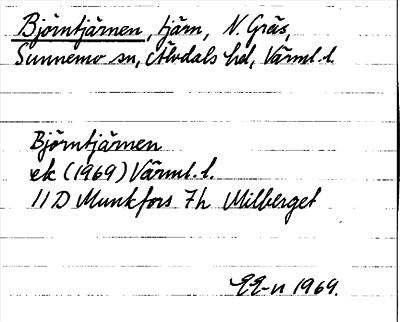 Björntjärnen, tjärn, N. Gräs,
Sunnemo sn, Älvdals hd, Värml. l.
Björntjärnen
ek (1969) Värml. l.
11 D Munkfors 7h Milberget
1969.